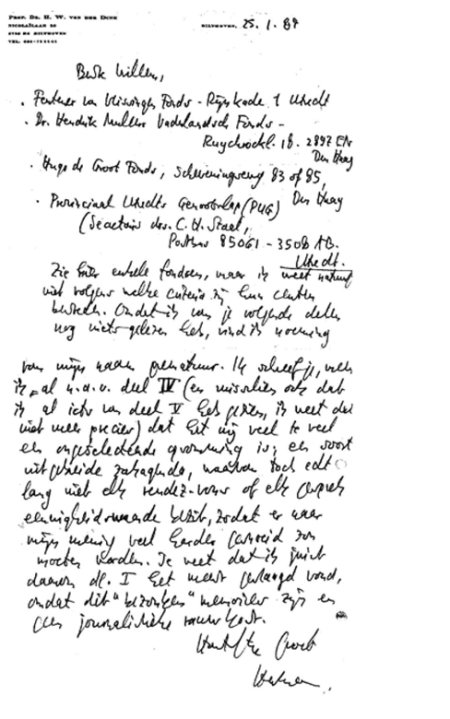 PROF. DR. H. W. VAN DER DUNK
NICOLAILAAN 20
BILTHOVEN, 25.1.89
Beste Willem,
. Fentener van Vlissingen Fonds - Rijnkade 1 Utrecht
. Dr. Hendrik Muller Vaderlandsch Fonds -
Ruychrocklaan 18. 2597
Den Haag
. Hugo de Groot Fonds, Scheveningseweg 83 of 85,
Den Haag
. Provinciaal Utrechts Genootschap (PUG)
(Secretaris drs. C. H. Staal,
Postbus 85061 - 3508 AB.
Utrecht.
Zie hier enkele fondsen, maar ik weet natuurlijk
niet volgens welke criteria zij hun centen
besteden. Omdat ik van je volgende delen
nog niets gelezen heb, vind ik noeming
van mijn naam prematuur. Ik schreef je, meen
ik, al n.a.v. deel IV (en misschien ook dat
ik al iets van deel V heb gezien, ik weet dat
niet meer precies) dat het mij veel te veel
een ongeselecteerde opsomming is; een soort
uitgebreide zakagenda, waarvan toch echt
lang niet elk rendez-vous of elk gesprek
eeuwigheidswaarde bezit, zodat er naar
mijn mening veel harder gesnoeid zou
moeten worden. Je weet dat ik juist
daarom dl. I het meest geslaagd vond,
omdat dit "bezonken" memoires zijn en
geen journalistieke rauwkost.
Hartelijke Groet
Herman.